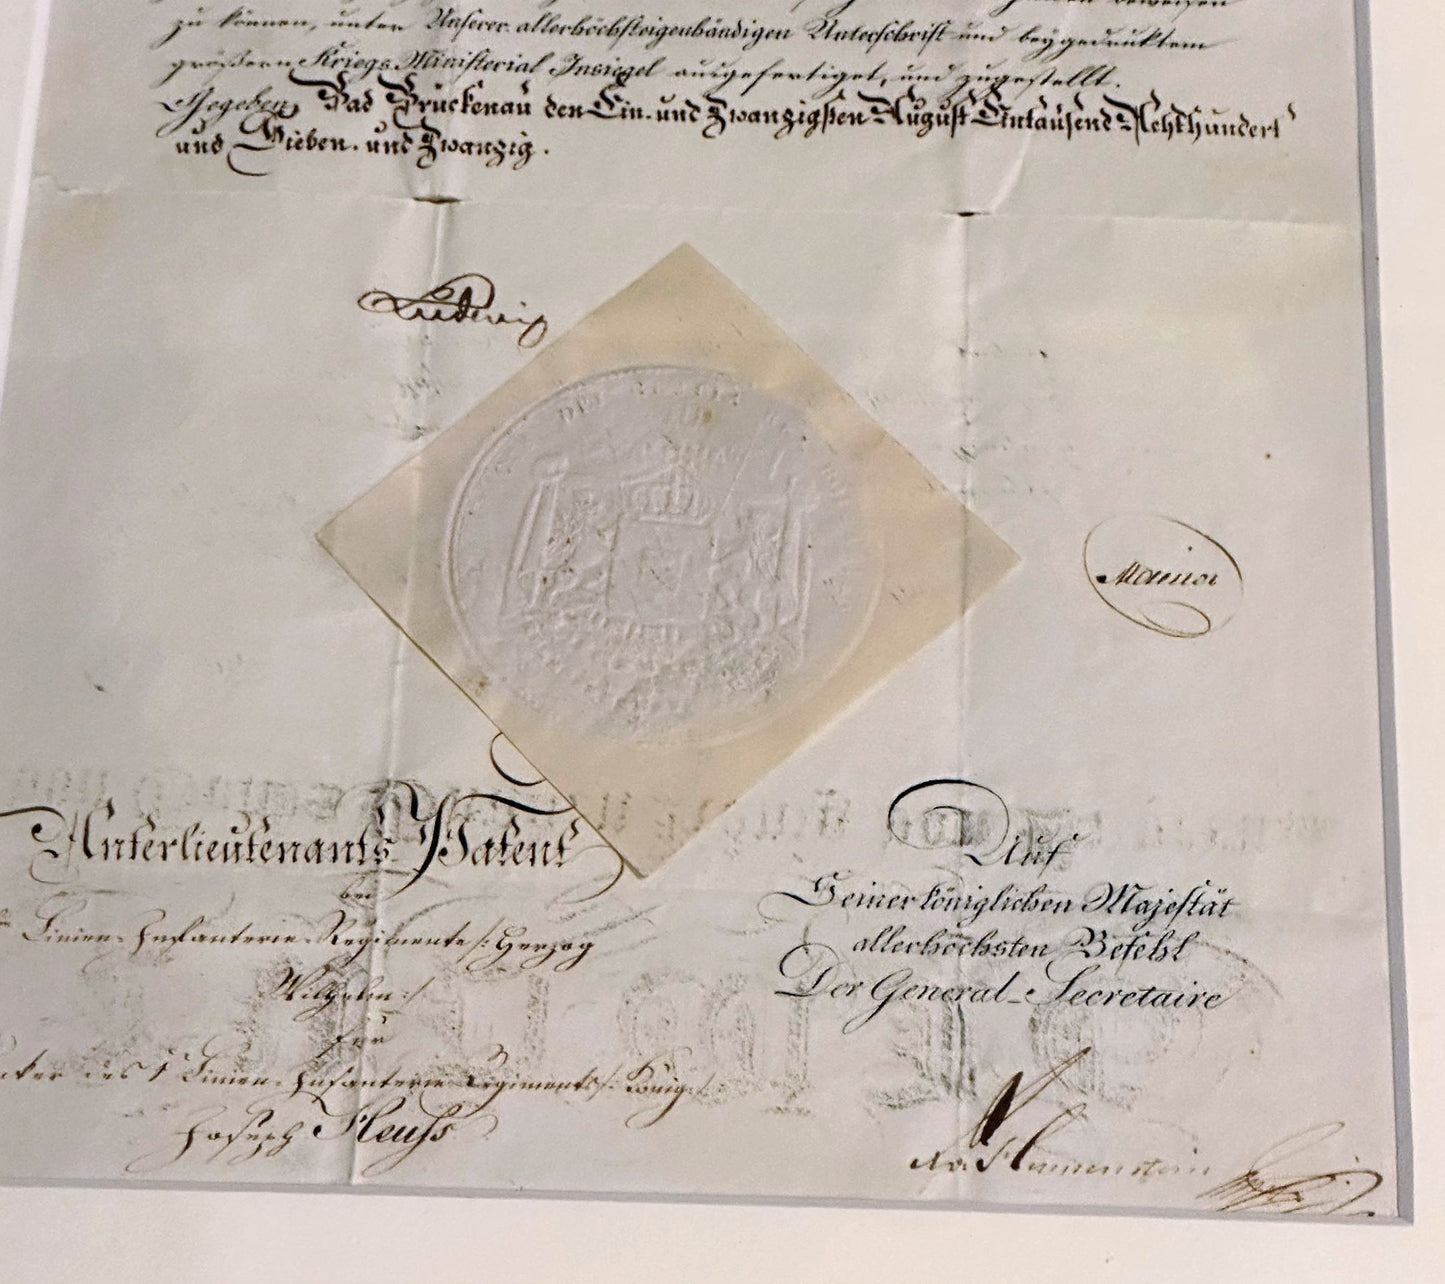 beweisen
zu können, unter Unserer allerhöchsteigenhändigen Unterschrift und beygedruktem
größern Kriegs-Ministerial Insiegel ausgefertiget, und zugestellt.
Gegeben Bad Brückenau den Ein- und Zwanzigsten August Eintausend Achthundert
und Sieben- und Zwanzig.
Ludwig
Unterlieutenants-Patent
bei
Linien-Infanterie-Regimente /: Herzog
Wilhelm :/
für
des 1 Linien-Infanterie-Regiments /: König :/
Joseph
Auf
Seiner königlichen Majestät
allerhöchsten Befehl
Der General-Secretaire